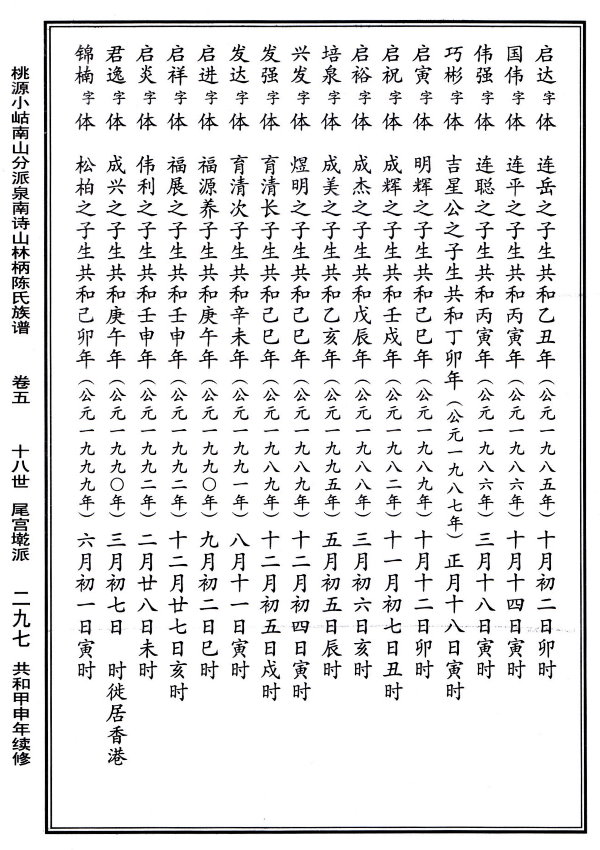 启达字体 连岳之子生共和乙丑年（公元一九八五年）十月初二日卯时
国伟字体 连平之子生共和丙寅年（公元一九八六年）十月十四日寅时
伟强字体 连聪之子生共和丙寅年（公元一九八六年）三月十八日寅时
巧彬字体 吉星公之子生共和丁卯年（公元一九八七年）正月十八日寅时
启寅字体 明辉之子生共和己巳年（公元一九八九年）十月十二日卯时
启祝字体 成辉之子生共和壬戌年（公元一九八二年）十一月初七日丑时
启裕字体 成杰之子生共和戊辰年（公元一九八八年）三月初六日亥时
培泉字体 成美之子生共和乙亥年（公元一九九五年）五月初五日辰时
兴发字体 煜明之子生共和己巳年（公元一九八九年）十二月初四日寅时
发强字体 育清长子生共和己巳年（公元一九八九年）十二月初五日戌时
发达字体 育清次子生共和辛未年（公元一九九一年）八月十一日寅时
启进字体 福源养子生共和庚午年（公元一九九〇年）九月初二日巳时
启祥字体 福展之子生共和壬申年（公元一九九二年）十二月廿七日亥时
启炎字体 伟利之子生共和壬申年（公元一九九二年）二月廿八日未时
君逸字体 成兴之子生共和庚午年（公元一九九〇年）三月初七日 时徙居香港
锦楠字体 松柏之子生共和己卯年（公元一九九九年）六月初一日寅时
桃源小岵南山分派泉南诗山林柄陈氏族谱 卷五 十八世 尾宫墘派 二九七 共和甲申年续修